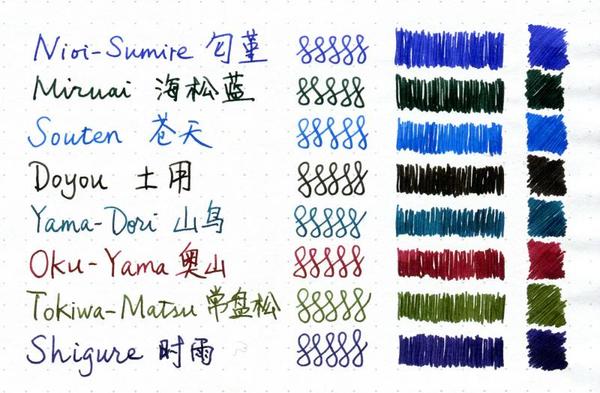 Nioi-Sumire 匂堇
Miruai 海松蓝
Souten 苍天
Doyou 土用
Yama-Dori 山鸟
Oku-Yama 奥山
Tokiwa-Matsu 常盘松
Shigure 时雨